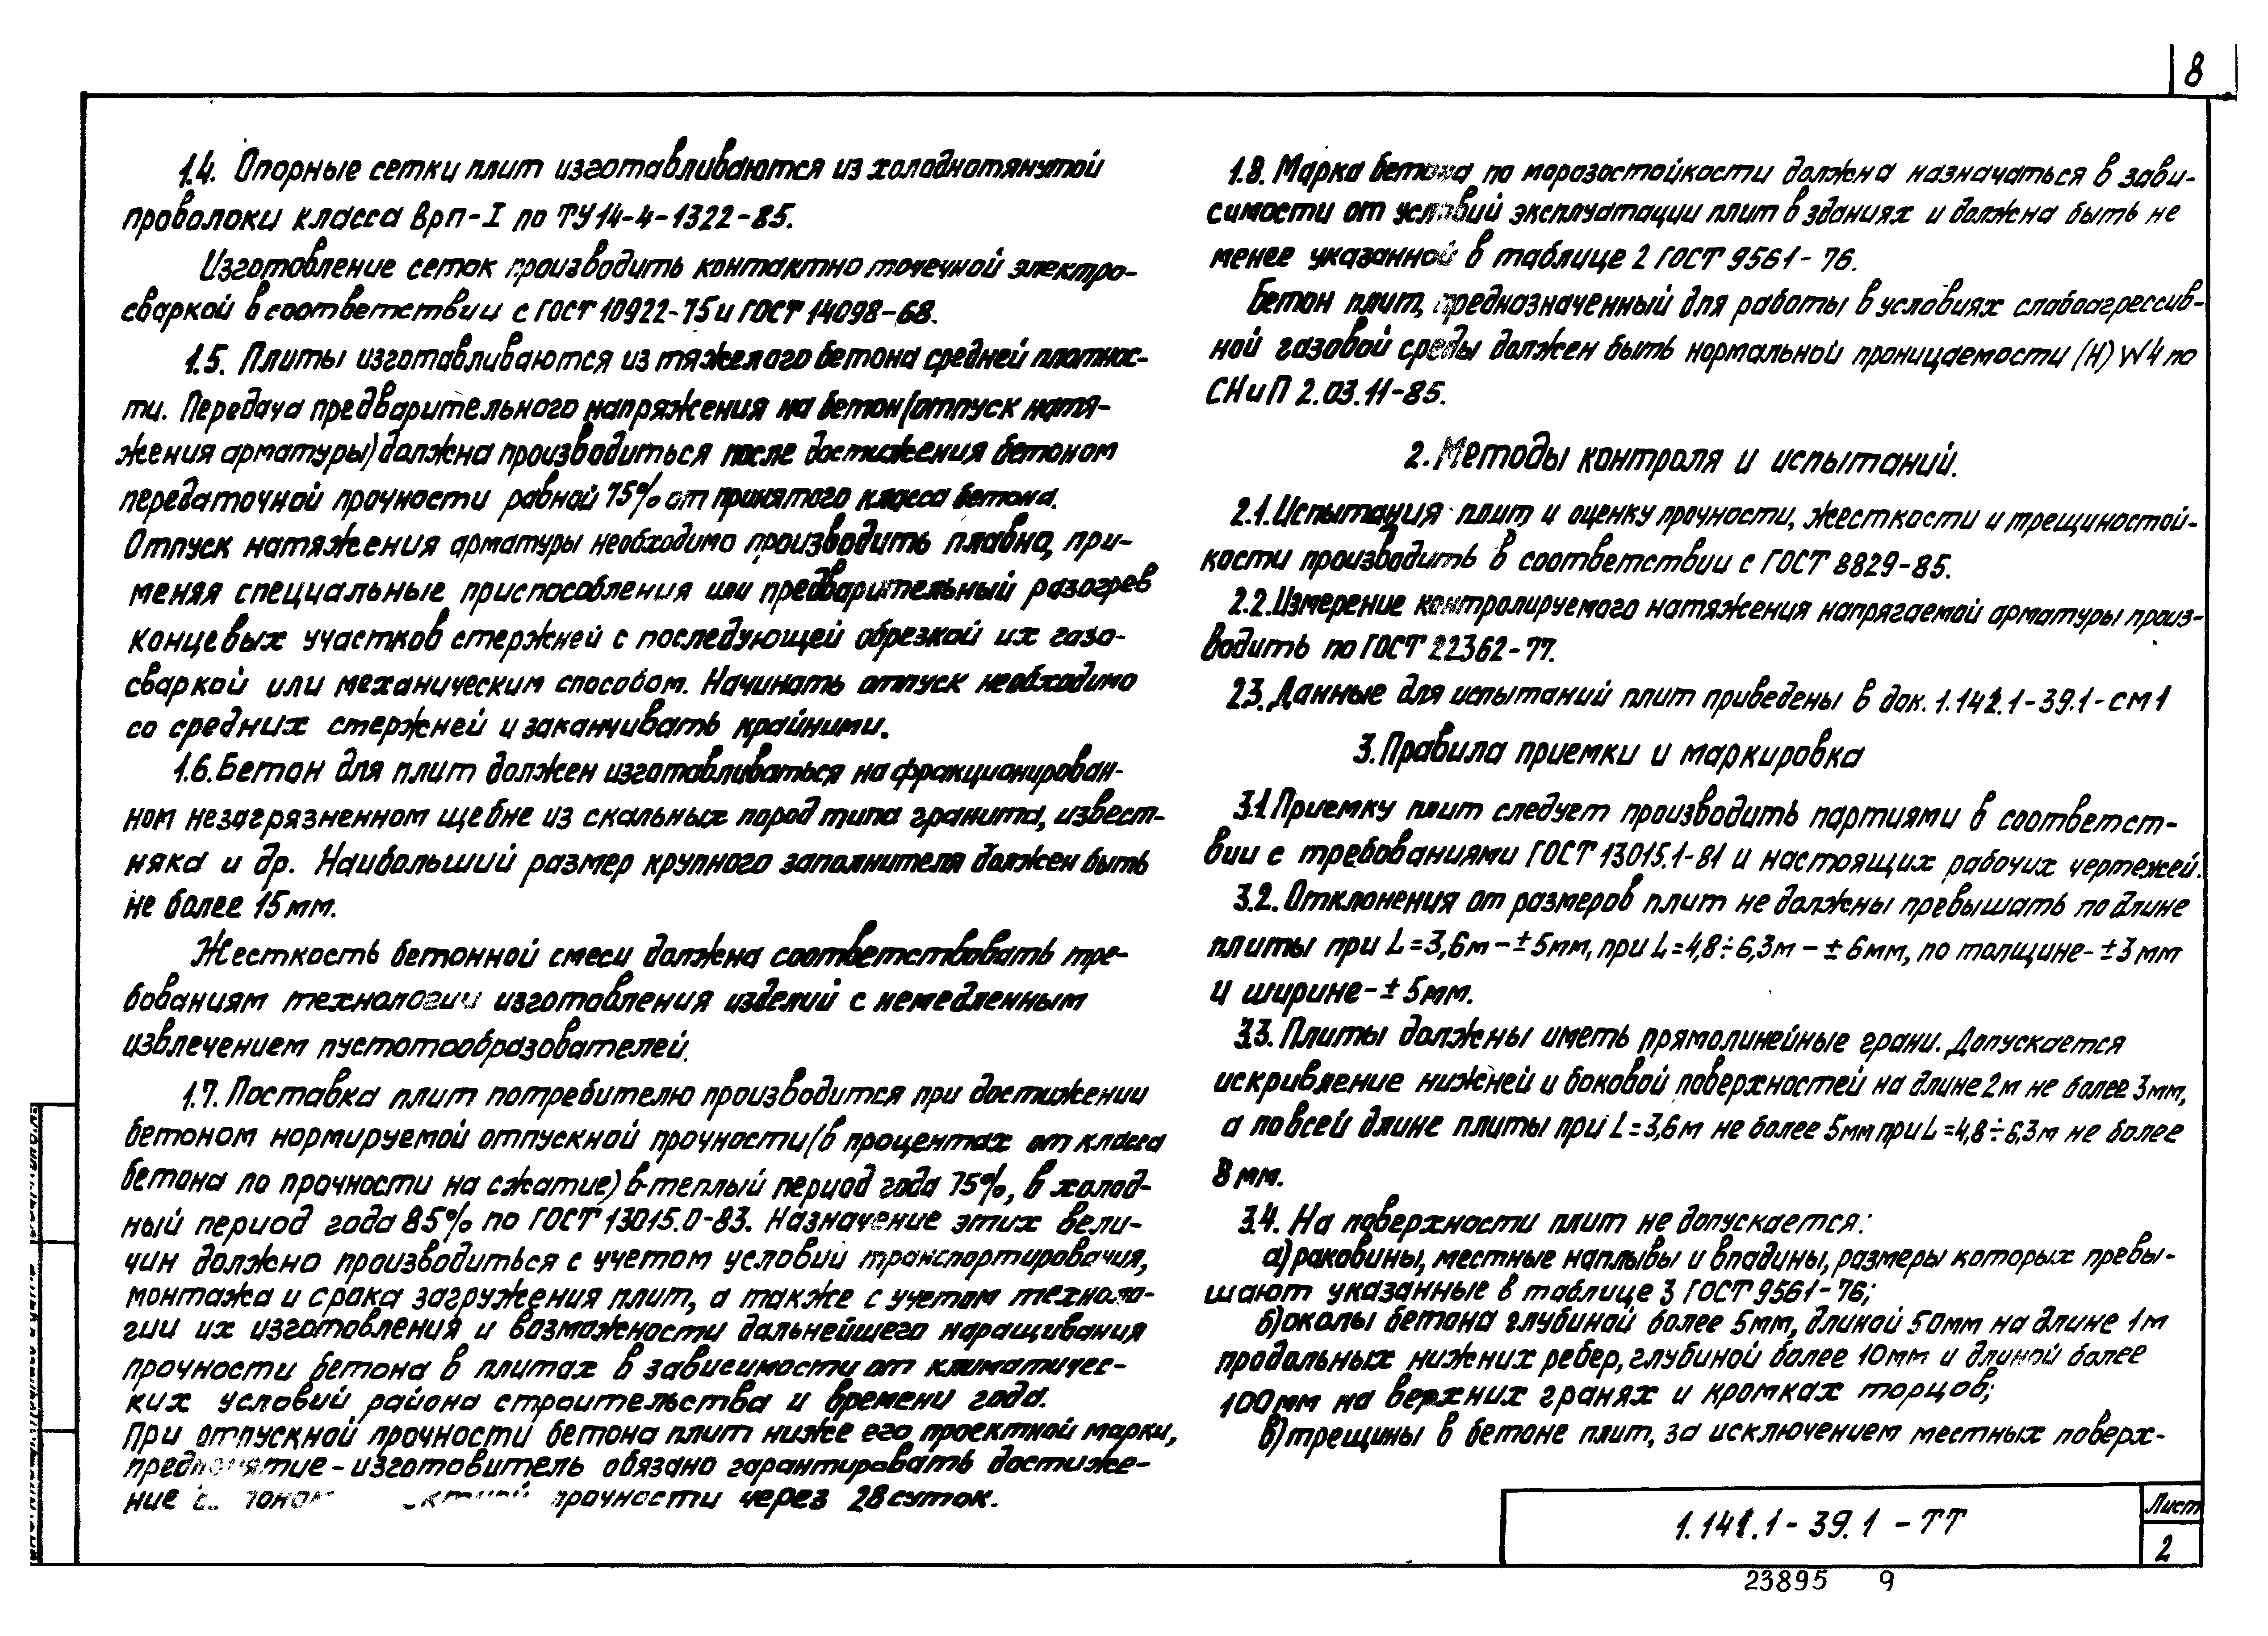 8
1.4. Опорные сетки плит изготавливаются из холоднотянутой
проволоки класса Врп-I по ТУ14-4-1322-85.
Изготовление сеток производить контактно точечной электро-
сваркой в соответствии с ГОСТ 10922-75 и ГОСТ 14098-68.
1.5. Плиты изготавливаются из тяжелого бетона средней плотнос-
ти. Передача предварительного напряжения на бетон (отпуск натя-
жения арматуры) должна производиться после достижения бетоном
передаточной прочности равной 75% от принятого класса бетона.
Отпуск натяжения арматуры необходимо производить плавно, при-
меняя специальные приспособления или предварительный разогрев
концевых участков стержней с последующей обрезкой их газо-
сваркой или механическим способом. Начинать отпуск необходимо
со средних стержней и заканчивать крайними.
1.6. Бетон для плит должен изготавливаться на фракционирован-
ном незагрязненном щебне из скальных пород типа гранита, извест-
няка и др. Наибольший размер крупного заполнителя должен быть
не более 15мм.
Жесткость бетонной смеси должна соответствовать тре-
бованиям технологии изготовления изделий с немедленным
извлечением пустотообразователей.
1.7. Поставка плит потребителю производится при достижении
бетоном нормируемой отпускной прочности (в процентах от класса
бетона по прочности на сжатие) в теплый период года 75%, в холод-
ный период года 85% по ГОСТ 13015.0-83. Назначение этих вели-
чин должно производиться с учетом условий транспортирования,
монтажа и срока загружения плит, а также с учетом техноло-
гии их изготовления и возможности дальнейшего наращивания
прочности бетона в плитах в зависимости от климатичес-
ких условий района строительства и времени года.
При отпускной прочности бетона плит ниже его проектной марки,
предприятие-изготовитель обязано гарантировать достиже-
ние прочности через 28 суток.
1.8. Марка бетона по морозостойкости должна назначаться в зави-
симости от условий эксплуатации плит в зданиях и должна быть не
менее указанной в таблице 2 ГОСТ 9561-76.
Бетон плит, предназначенный для работы в условиях слабоагрессив-
ной газовой среды должен быть нормальной проницаемости (Н) W4 по
СНиП 2.03.11-85.
2. Методы контроля и испытаний.
2.1. Испытания плит и оценку прочности, жесткости и трещиностой-
кости производить в соответствии с ГОСТ 8829-85.
2.2. Измерение контролируемого натяжения напрягаемой арматуры произ-
водить по ГОСТ 22362-77.
2.3. Данные для испытаний плит приведены в док. 1.141.1-39.1-СМ1
3. Правила приемки и маркировка
3.1 Приемку плит следует производить партиями в соответст-
вии с требованиями ГОСТ 13015.1-81 и настоящих рабочих чертежей.
3.2. Отклонения от размеров плит не должны превышать по длине
плиты при L=3,6м-±5мм, при L=4,8÷6,3м-±6мм, по толщине-±3мм
и ширине-±5мм.
3.3. Плиты должны иметь прямолинейные грани. Допускается
искривление нижней и боковой поверхностей на длине 2м не более 3мм,
а по всей длине плиты при L=3,6м не более 5мм при L=4,8÷6,3м не более
8мм.
3.4. На поверхности плит не допускается:
а) раковины, местные наплывы и впадины, размеры которых превы-
шают указанные в таблице 3 ГОСТ 9561-76;
б) околы бетона глубиной более 5мм, длиной 50мм на длине 1м
продольных нижних ребер, глубиной более 10мм и длиной более
100мм на верхних гранях и кромках торцов;
в) трещины в бетоне плит, за исключением местных поверх-
1.141.1-39.1-ТТ
Лист
2
23895 9